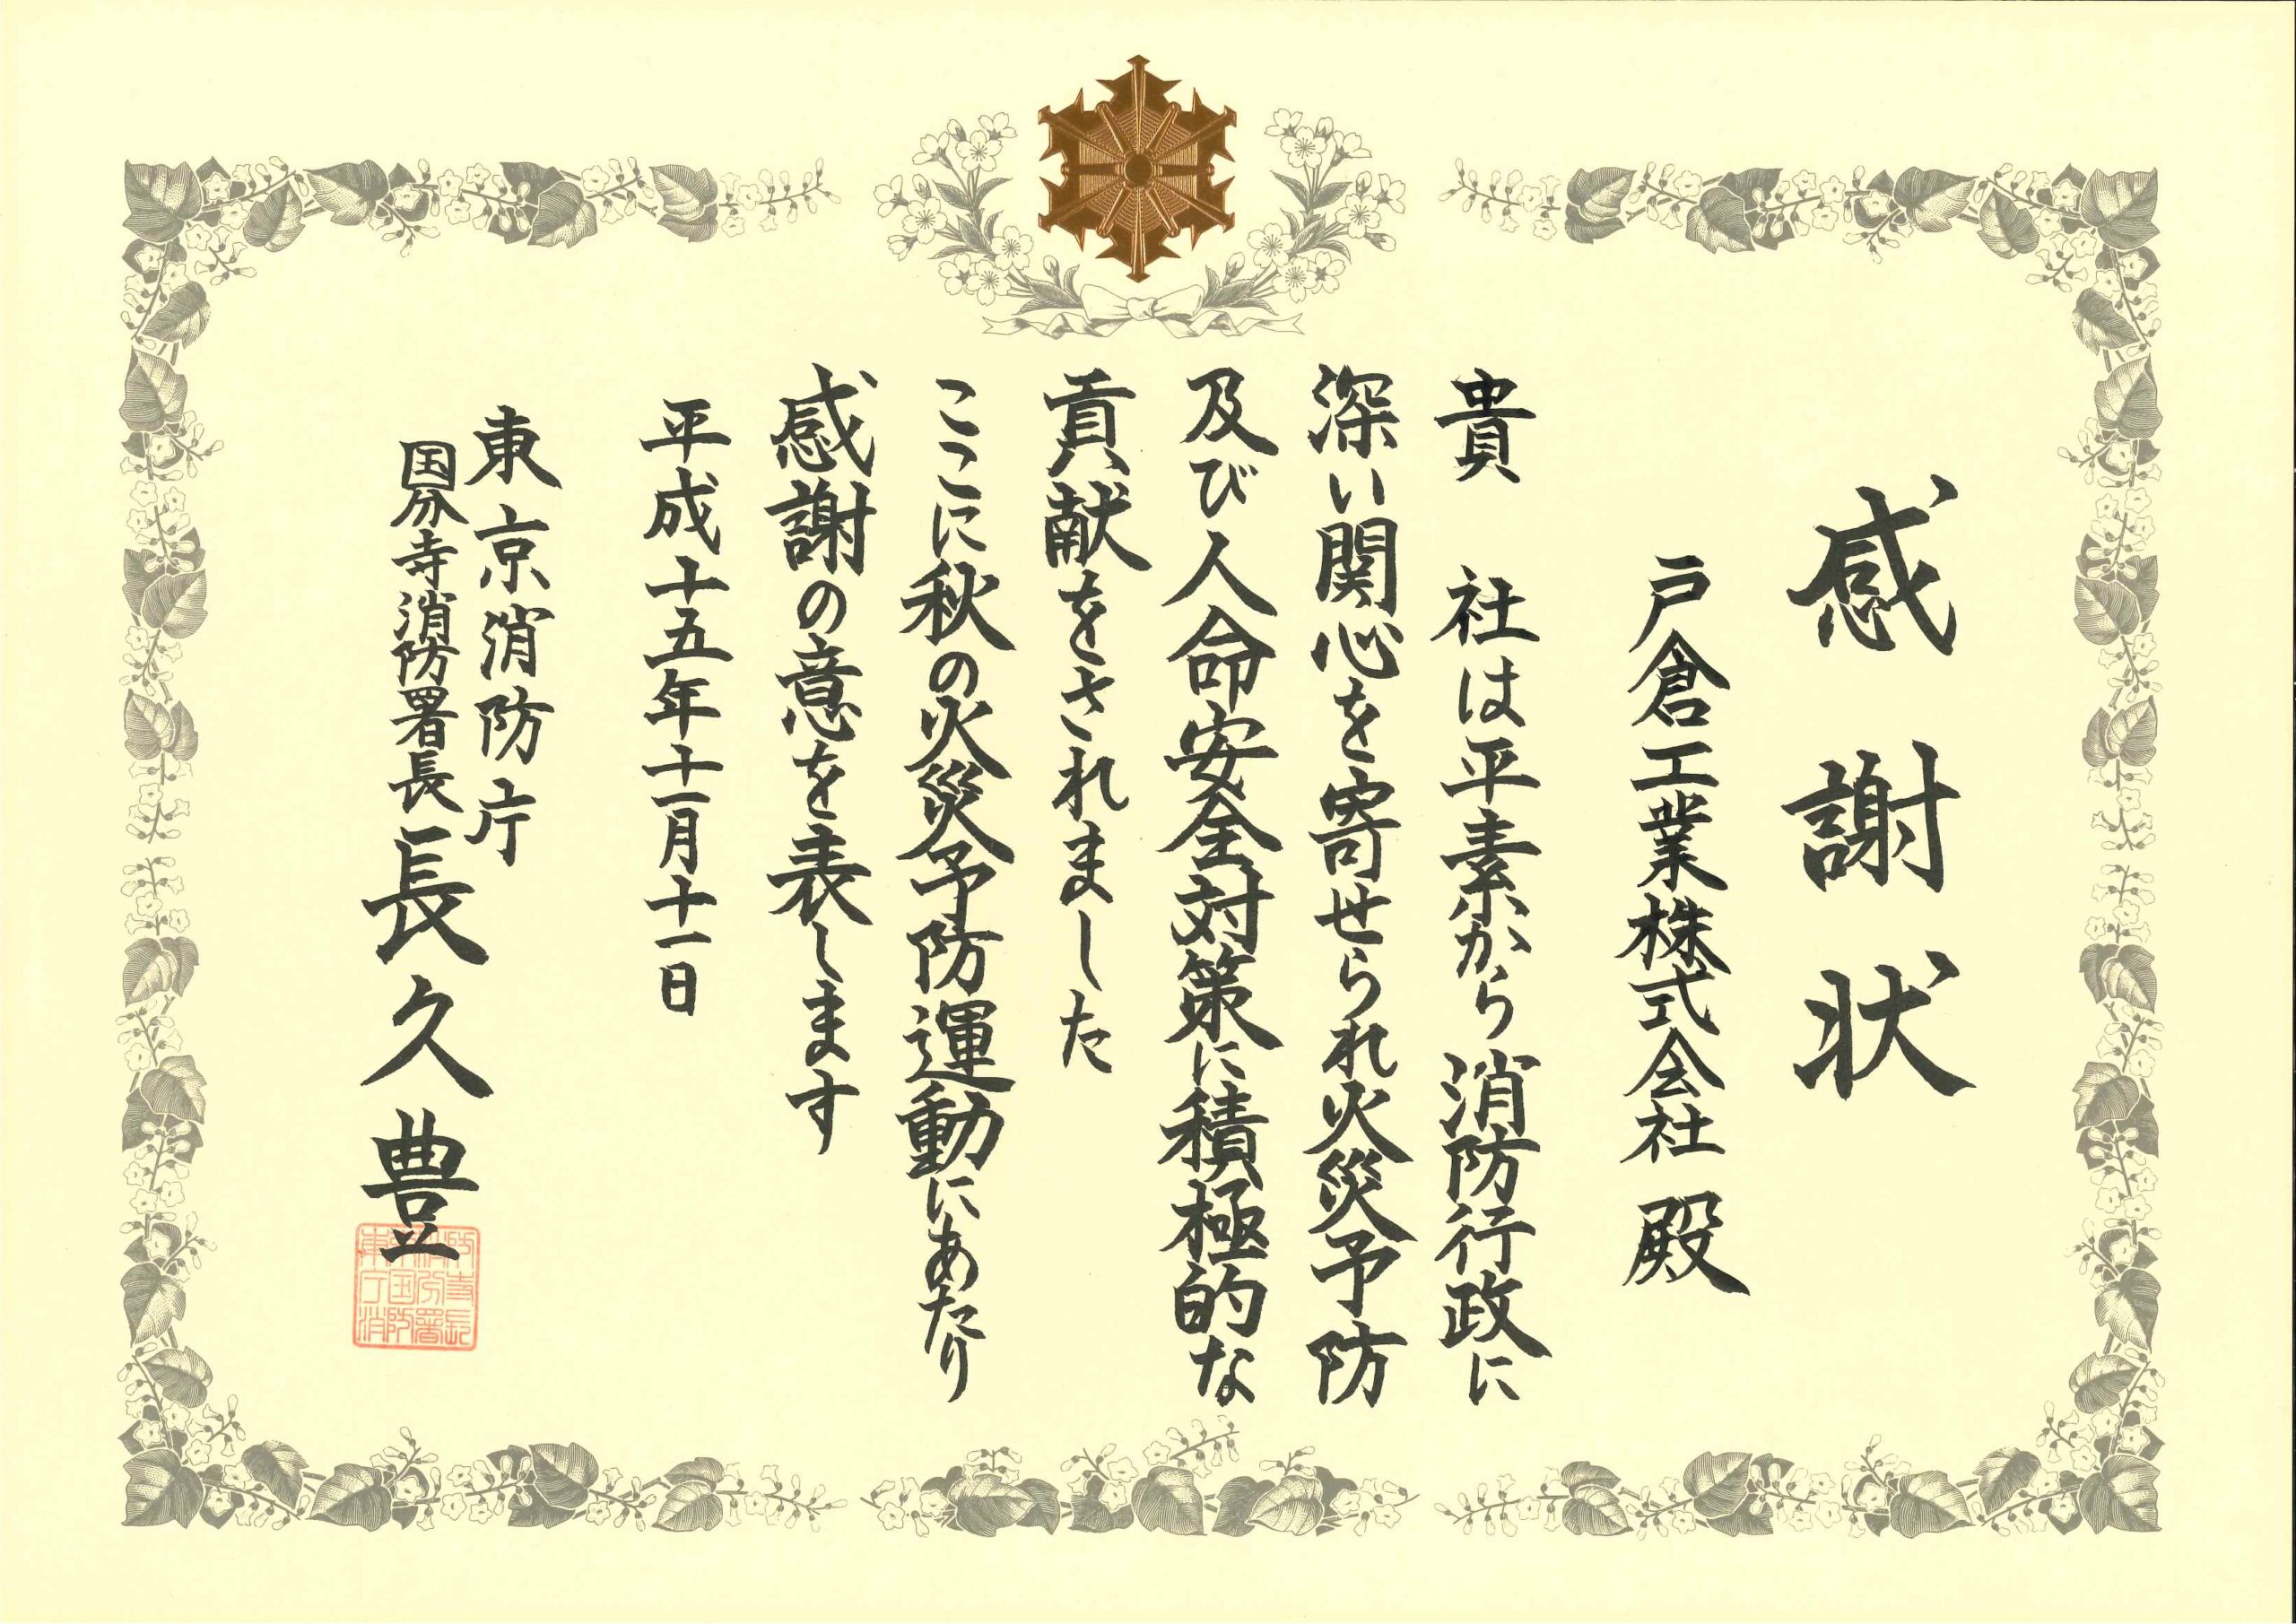 感謝状
戸倉工業株式会社 殿
貴 社は平素から消防行政に
深い関心を寄せられ火災予防
及び人命安全対策に積極的な
貢献をされました
ここに秋の火災予防運動にあたり
感謝の意を表します
平成十五年十一月十一日
東京消防庁
国分寺消防署長 長久豊
東京消防
庁国分寺
消防署長